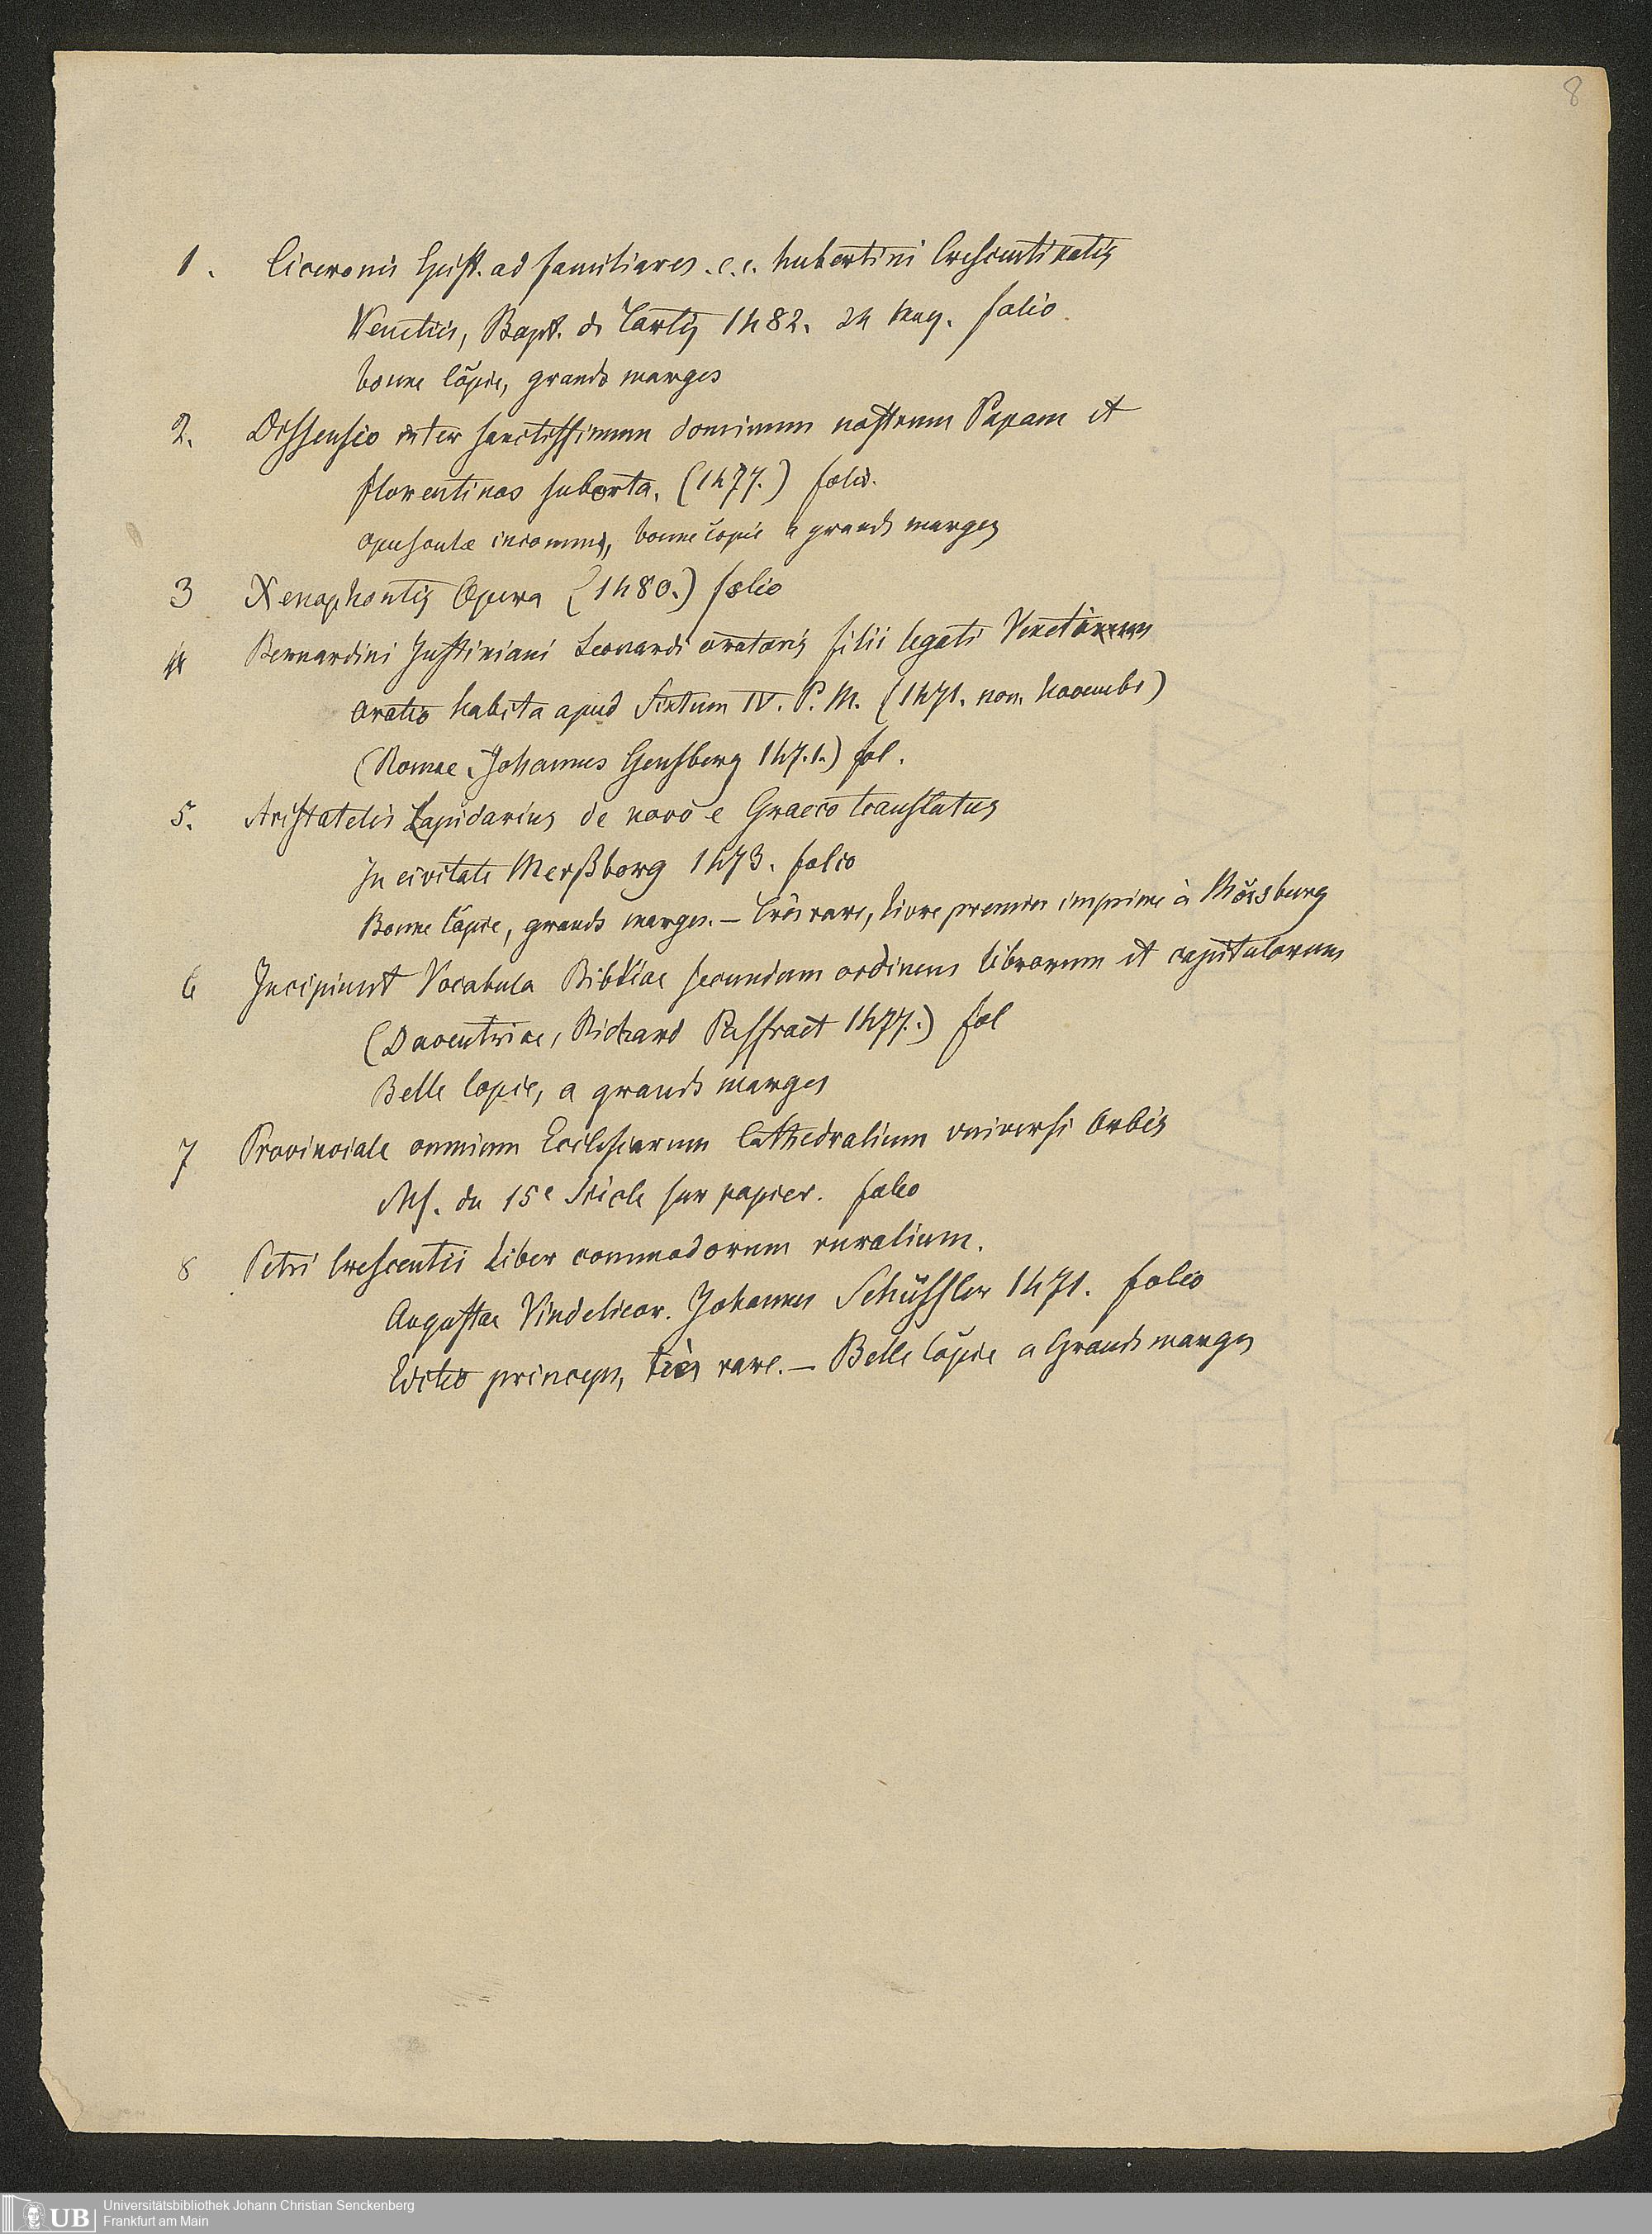 8
1. Ciceronis Epist. ad familiares. c. c. hubertini Crescentinatis
Venetiis, Bapt. de Cortis 1482. 24 May. folio.
bonne Copie, grands marges
2. Dissensio inter sanctissimum dominum nostrum Papam et
florentinos suborta. (1477.) folio.
opuscule incommu, bonne copie a grands marges
3 Xenophontis Opera (1480.) folio
4 Bernardini Justiniani Leonardi oratoris filii legati Venetorum
oratio habita apud Sixtum IV. P. M. (1471. non. Novembr)
(Romae, Johannes Gensberg 1471.) fol.
5. Aristotelis Lapidarius de novo e Graeco translatus
In civitate Merßborg 1473. folio
Bonne Copie, grands marges. — Très rare, livre premier imprimé à Mörsburg
6 Incipiunt Vocabula Bibliae secundum ordinem librorum et capitulorum
(Daventriae, Richard Paffraet 1477.) fol
Belle Copie, a grands marges
7 Provinciale omnium Ecclesiarum Cathedralium universi Orbis
Ms. du 15e Siècle sur papier. folio
8 Petri Crescentii Liber commodorum ruralium.
Augustae Vindelicor. Johannes Schüssler 1471. folio
Editio princeps, très rare. — Belle Copie a Grands marges
UB Universitätsbibliothek Johann Christian Senckenberg
Frankfurt am Main